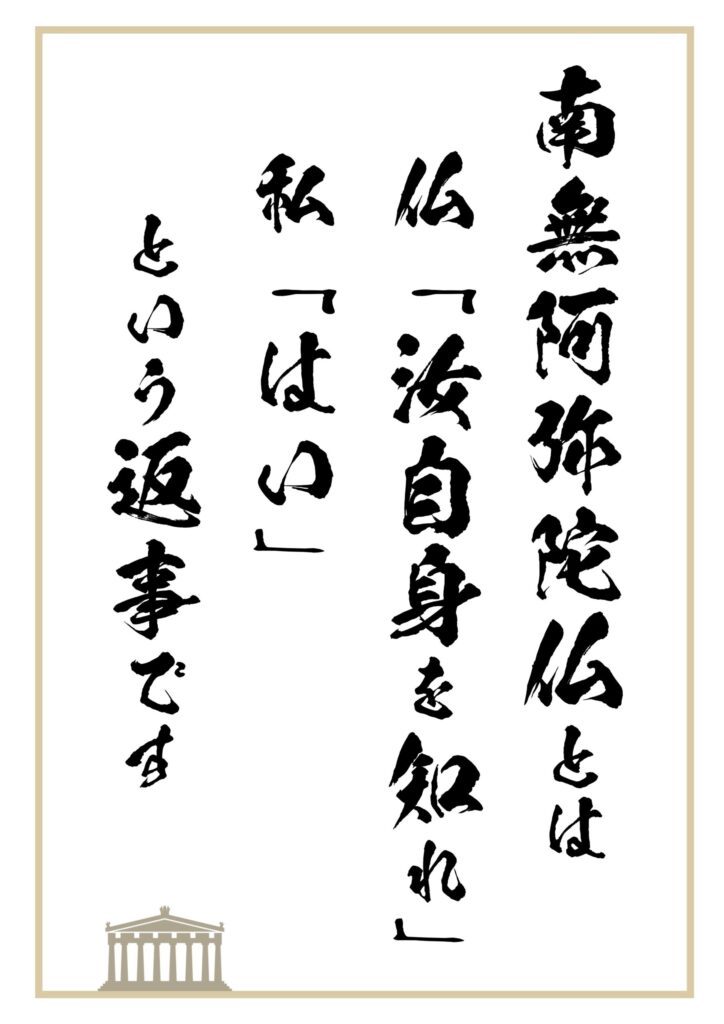 南無阿弥陀仏とは
仏「汝自身を知れ」
私「はい」
という返事です